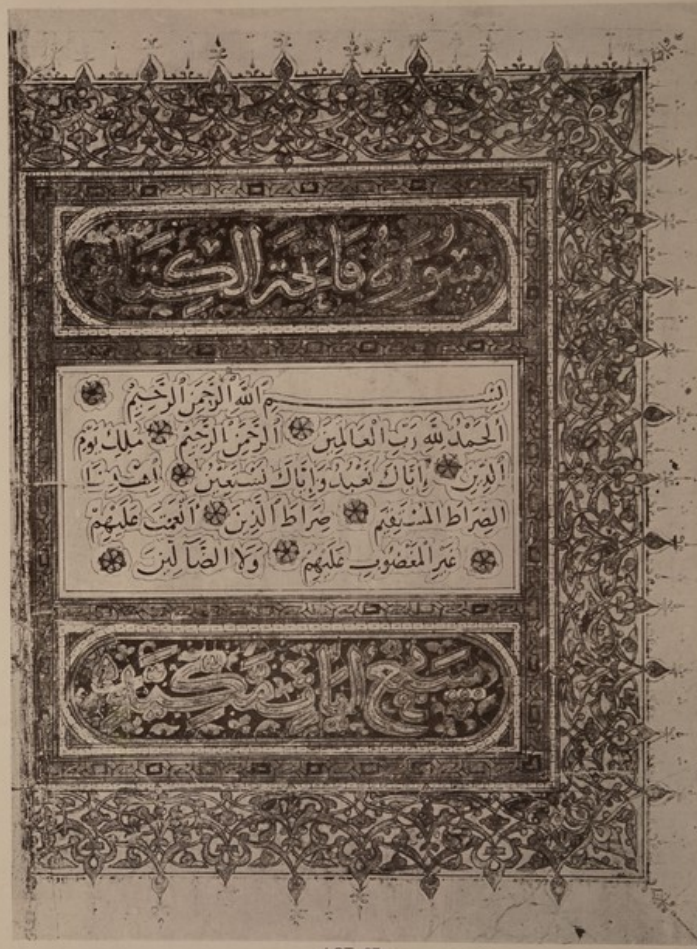 سورة فاتحة الكتا
بِسْمِ اللهِ الرَّحْمٰنِ الرَّحِيْمِ
اَلْحَمْدُ لِلّٰهِ رَبِّ الْعَالَمِيْنَ الرَّحْمٰنِ الرَّحِيْمِ مٰلِكِ يَوْمِ
الدِّيْنِ اِيَّاكَ نَعْبُدُ وَاِيَّاكَ نَسْتَعِيْنُ اِهْدِنَا
الصِّرَاطَ الْمُسْتَقِيْمَ صِرَاطَ الَّذِيْنَ اَنْعَمْتَ عَلَيْهِمْ
غَيْرِ الْمَغْضُوْبِ عَلَيْهِمْ وَلَا الضَّآلِّيْنَ
سبع ايات مكية